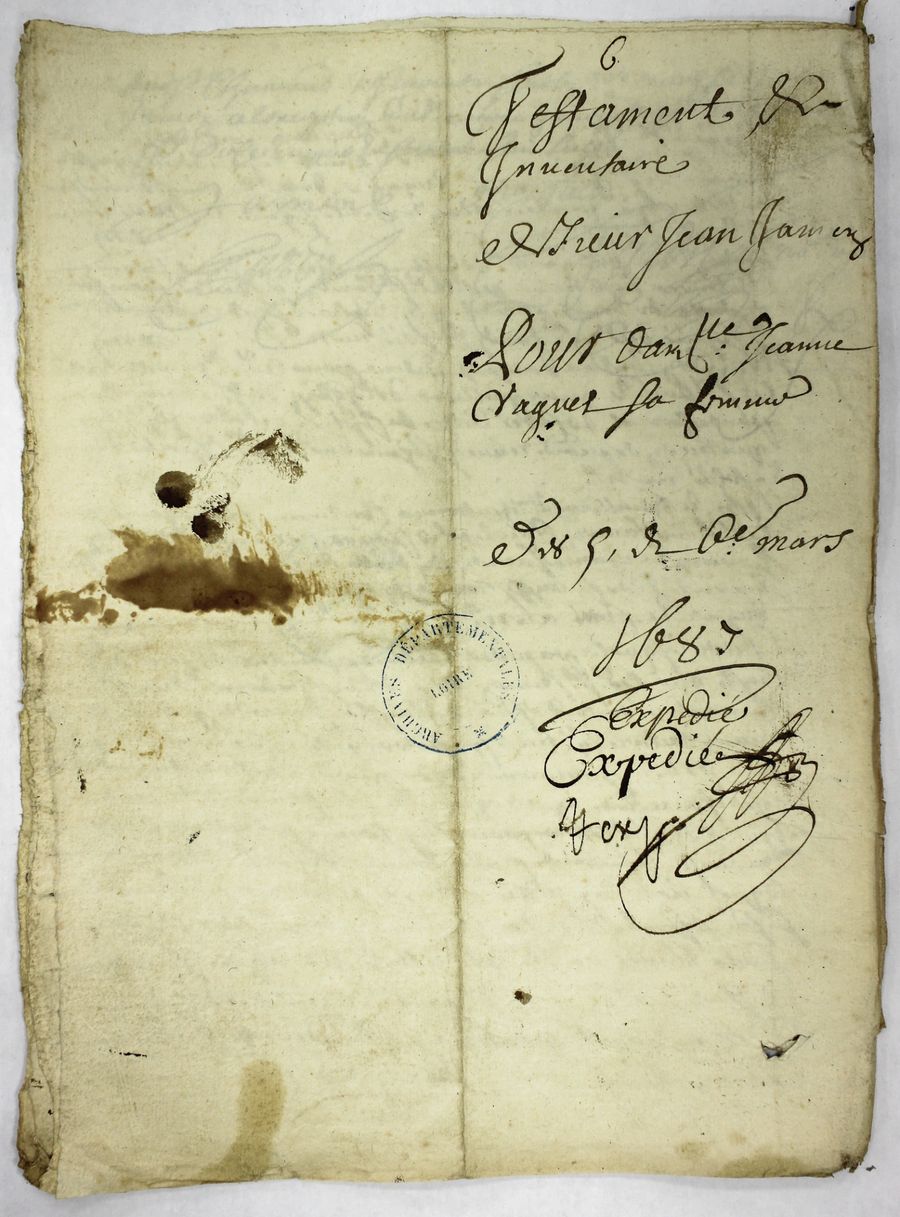 6
Testament &
Inuentaire
de Sieur Jean Jamen
Pour dam.lle Jeanne
Vagnet sa femme
Des 5. & 6e. mars
1687
Expedié
Expediee
ARCHIVES DÉPARTEMENTALES
LOIRE